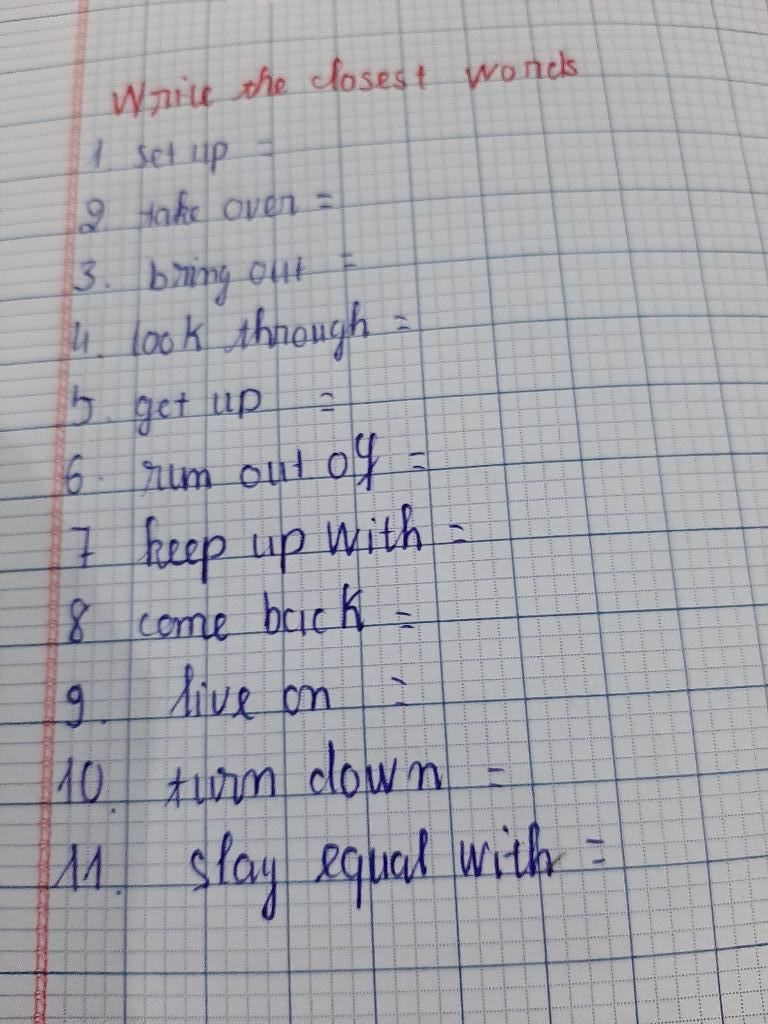 Write the closest words
1 set up =
2 take over =
3. bring out =
4. look through =
5. get up =
6. run out of =
7 keep up with =
8 come back =
9. live on =
10. turn down =
11. stay equal with =